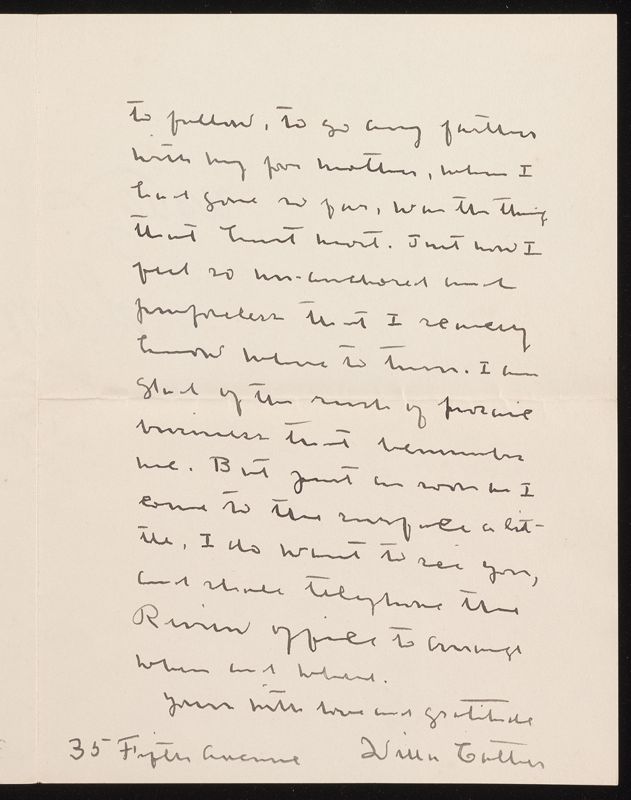 to follow, to go any further
with my poor mother, when I
had gone so far, was the thing
that hurt most. Just now I
feel so un-anchored and
purposeless that I scarcely
know where to turn. I am
glad of the rush of prosaic
business that benumbs
me. But just as soon as I
come to the surface a lit-
tle, I do want to see you,
and shall telephone the
Review office to arrange
when and where.
Yours with love and gratitude
35 Fifth Avenue Willa Cather